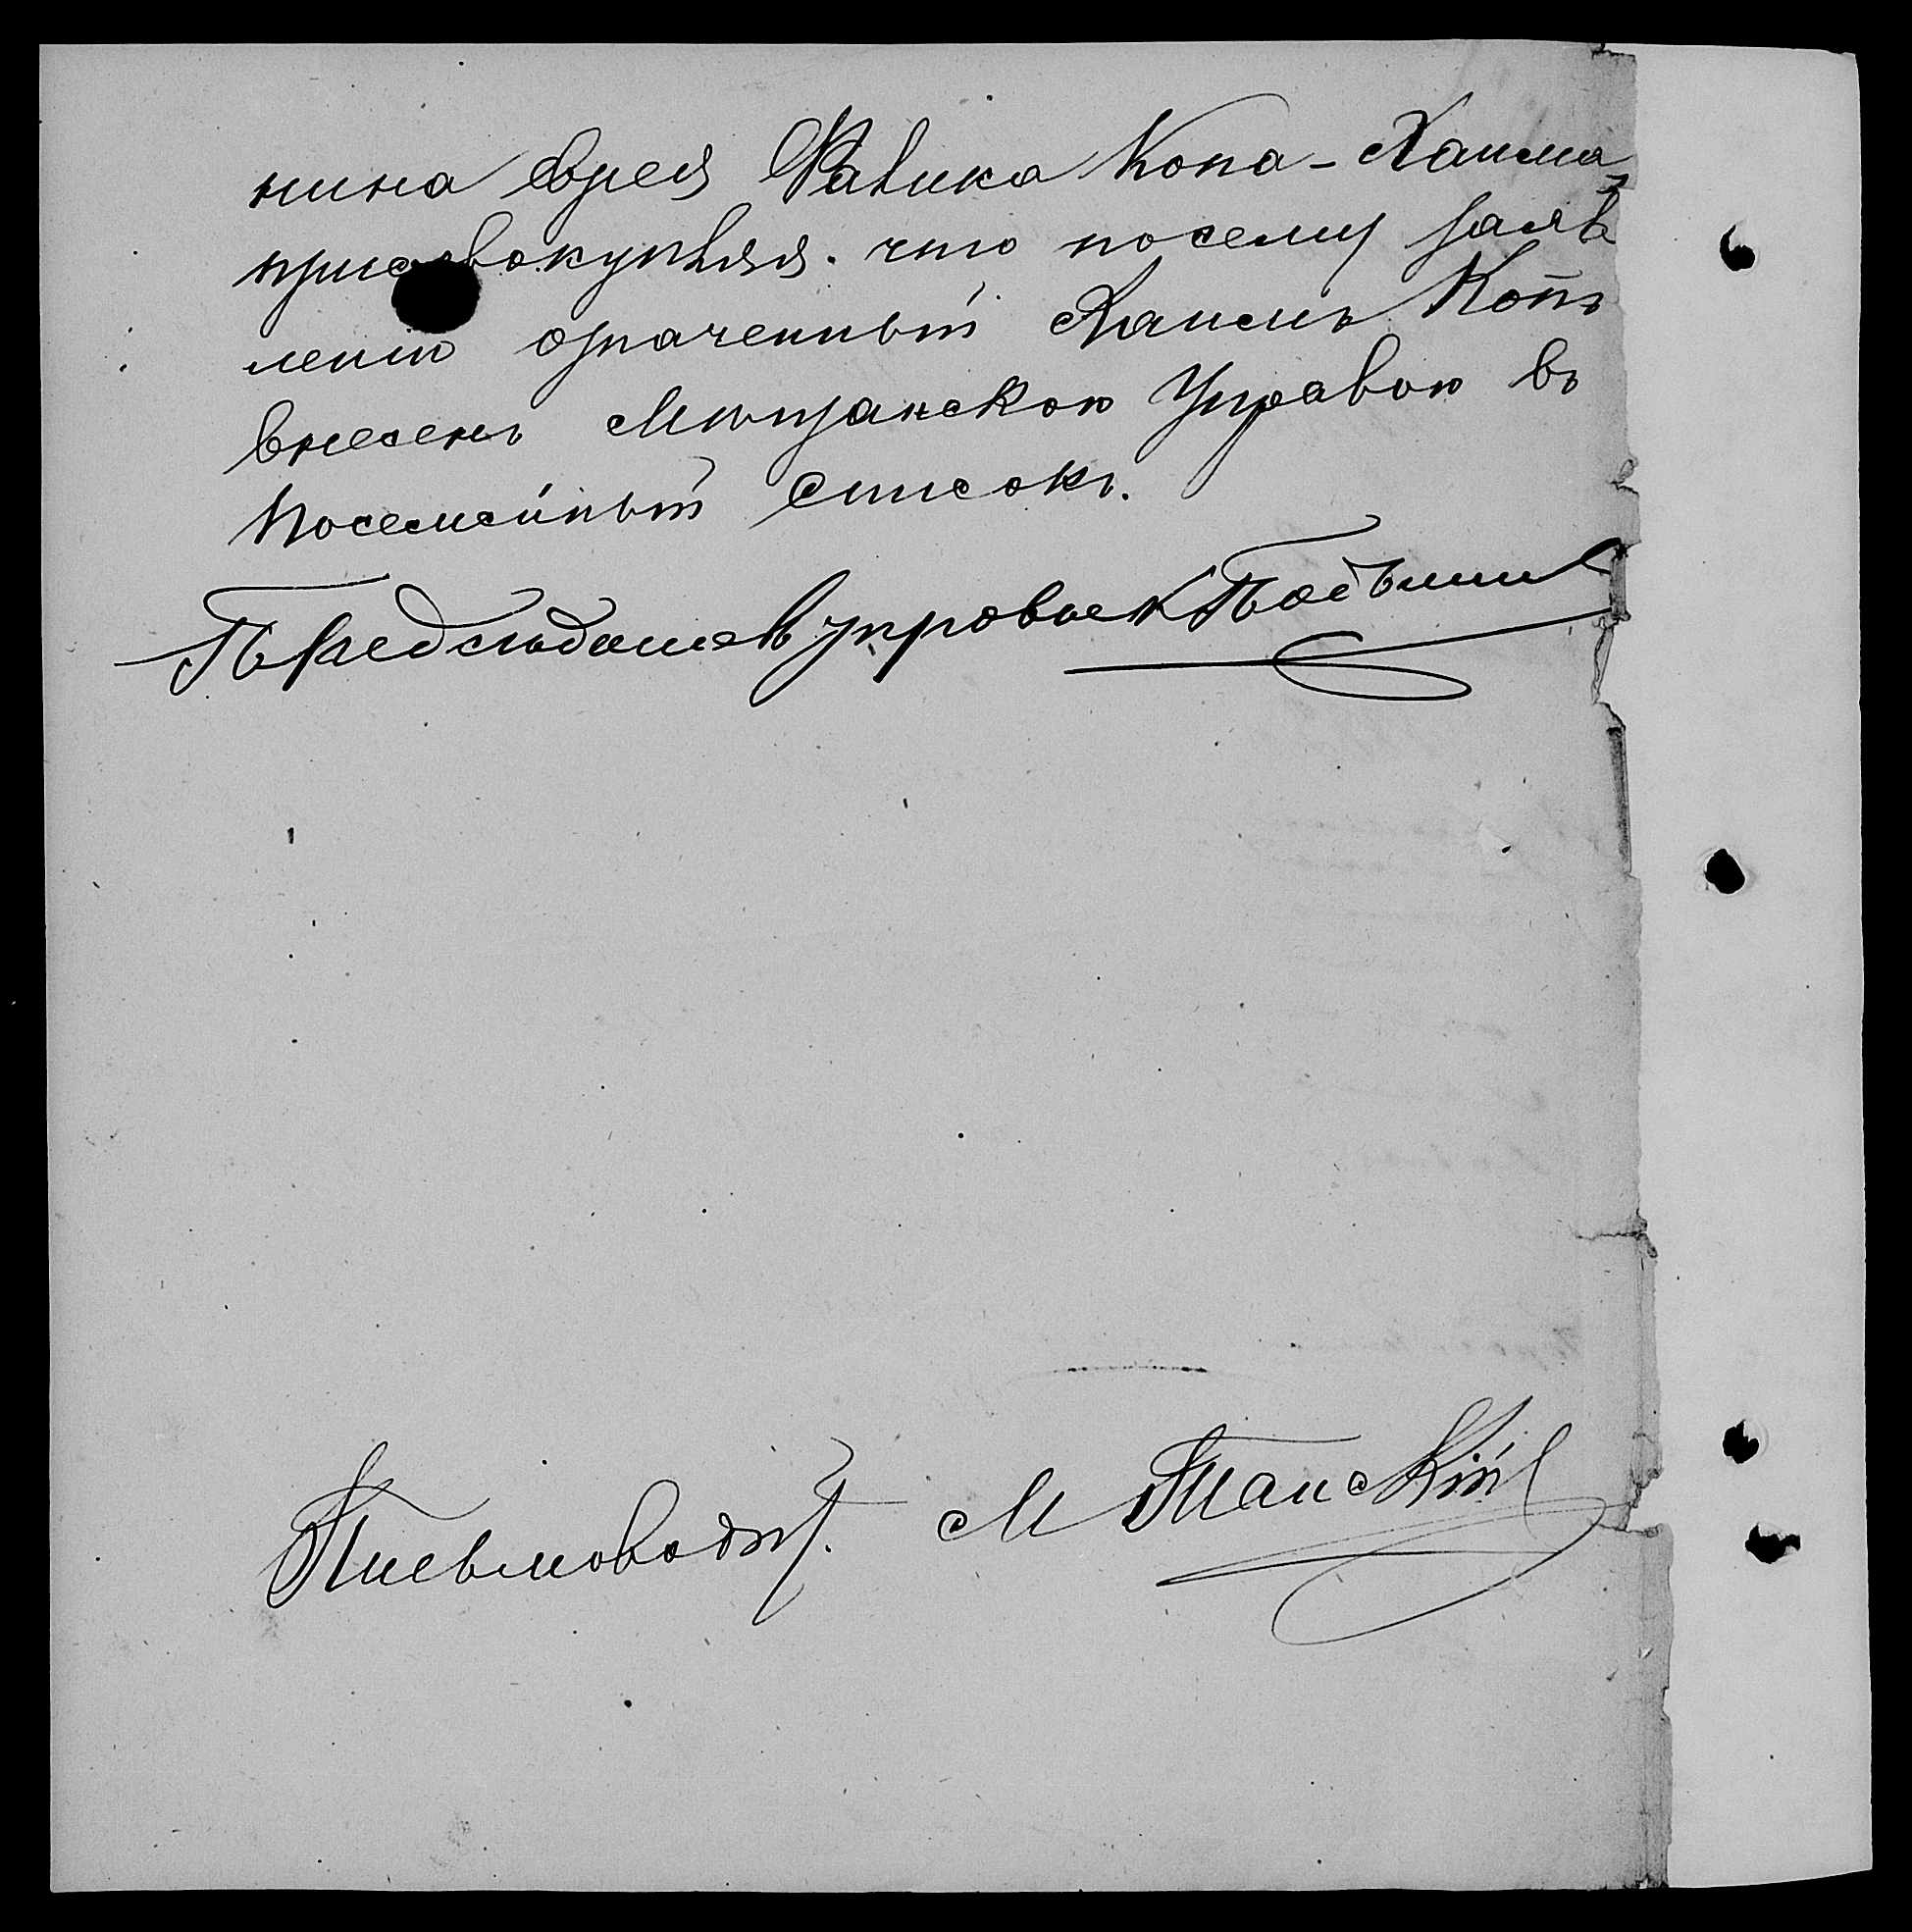 нина еврея Файка Копа-Хаима,
присовокупляя. что посему заяв
лению означенный Хаимъ Копъ
внесенъ Мѣщанскою Управою въ
посемейный списокъ.
Председатель управы К
Письмоводит. М Танскій